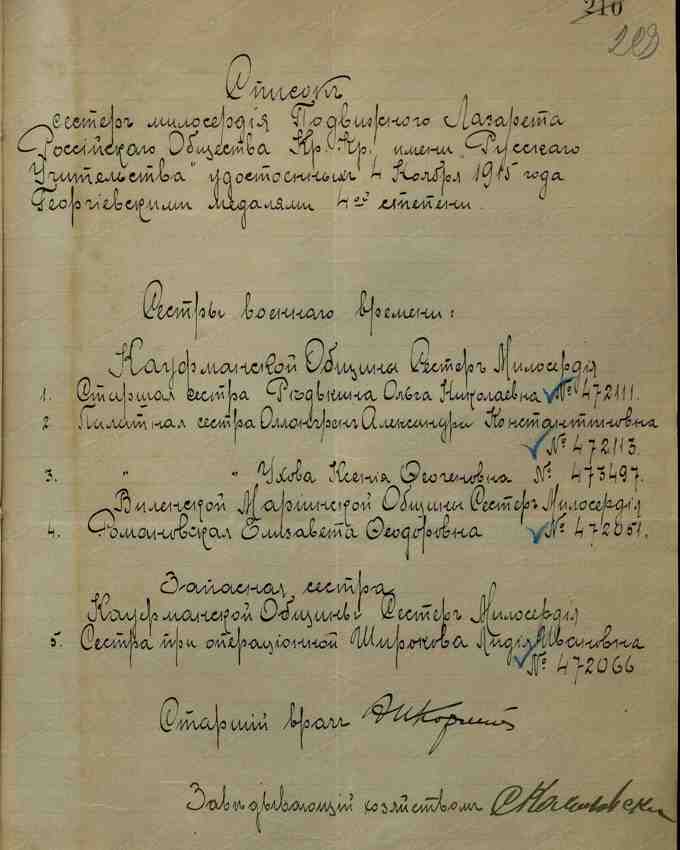 210
203
Списокъ
сестеръ милосердія Подвижного Лазарета
Россійскаго Общества Кр. Кр. имени "Русскаго
Учительства" удостоенныхъ 4 Ноября 1915 года
Георгіевскими медалями 4ой степени.
Сестры военнаго времени:
Кауфманской Общины Сестеръ Милосердія
1. Старшая сестра Рѣдькина Ольга Николаевна № 472111.
2 Палатная сестра Оллонгренъ Александра Константиновна
№ 472113.
3. " " Ухова Ксенія Ѳеогеновна № 473497.
Виленской Маріинской Общины Сестеръ Милосердія
4. Романовская Елизавета Ѳеодоровна № 472051.
Запасная сестра
Кауфманской Общины Сестеръ Милосердія
5. Сестра при операціонной Широкова Лидія Ивановна
№ 472066
Старшій врачъ
Завѣдывающій хозяйствомъ